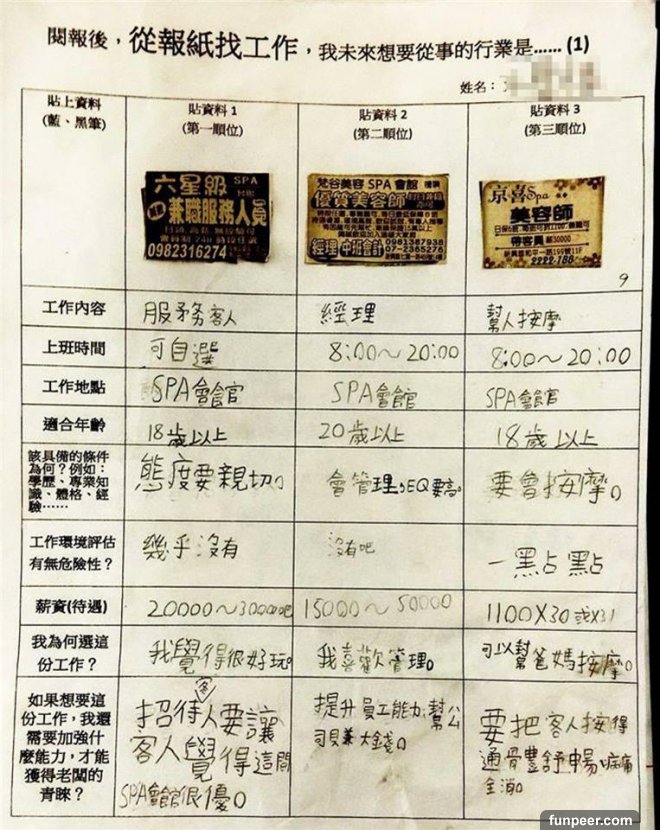 閱報後，從報紙找工作，我未來想要從事的行業是…… (1)
姓名：
貼上資料
(藍、黑筆)
貼資料 1
(第一順位)
貼資料 2
(第二順位)
貼資料 3
(第三順位)
六星級 SPA
兼職服務人員
0982316274
梵谷美容 SPA 會館
優質美容師
經理 中班會計
0981387938
07-2365275
京喜Spa
美容師
帶客員
30000
2222-186
9
工作內容
服務客人
經理
幫人按摩
上班時間
可自選
8:00～20:00
8:00～20:00
工作地點
SPA會館官
SPA會館
SPA會館官
適合年齡
18歲以上
20歲以上
18歲以上
該具備的條件
為何？例如：
學歷、專業知
識、體格、經
驗……
態度要親切。
會管理，EQ要高。
要會按摩。
工作環境評估
有無危險性？
幾乎沒有
沒有吧
一點點
薪資(待遇)
20000～30000吧
15000～50000
1100X30或X31
我為何選這
份工作？
我覺得很好玩。
我喜歡管理。
可以幫爸媽按摩。
如果想要這
份工作，我還
需要加強什
麼能力，才能
獲得老闆的
青睞？
招待客人要讓
客人覺得這間
SPA會館很優。
提升員工能力，幫公
司賺大錢。
要把客人按得
通骨豐舒暢，病痛
全消。
funpeer.com